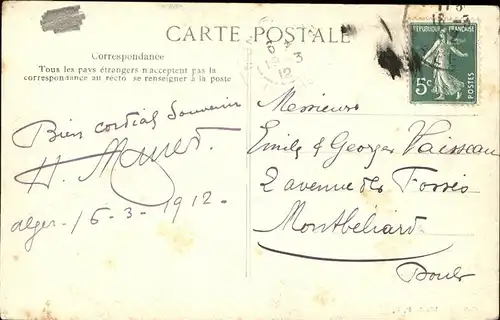 CARTE POSTALE
Correspondance
Tous les pays étrangers n'acceptent pas la
correspondance au recto se renseigner à la poste
Bien cordial Souvenir
H.
alger - 16-3-1912-
Messieurs
Emile & Georges Vaisseau
2 avenue des Fossés
Montbéliard
Doubs
REPUBLIQUE FRANÇAISE
5c
POSTES